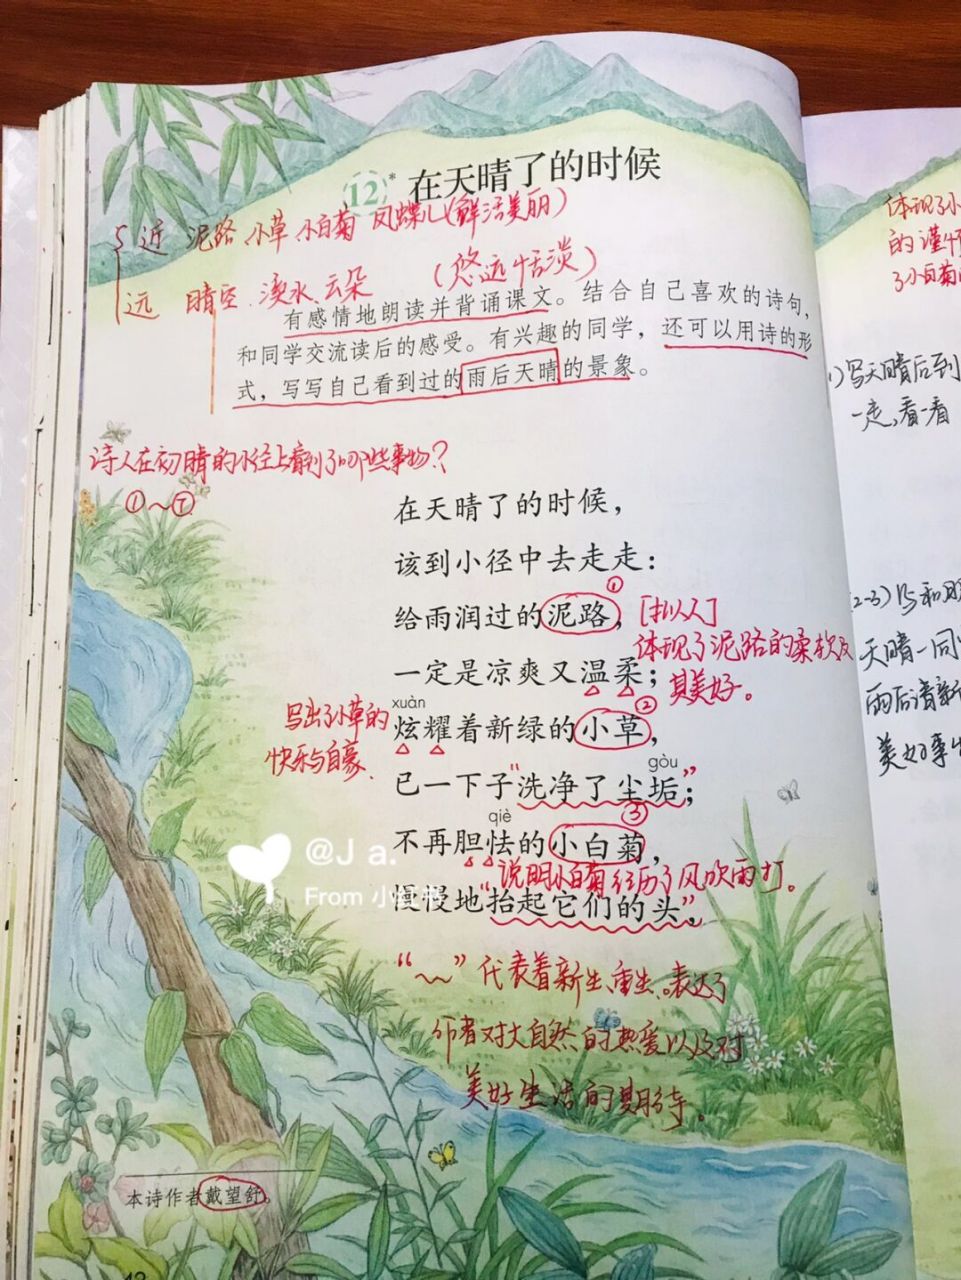 12* 在天晴了的时候
近 泥路、小草、小白菊 凤蝶儿(鲜活美丽)
远 晴空、溪水、云朵 (悠远恬淡)
有感情地朗读并背诵课文。结合自己喜欢的诗句,
和同学交流读后的感受。有兴趣的同学,还可以用诗的形
式,写写自己看到过的雨后天晴的景象。
诗人在初晴的小径上看到了哪些事物?
①~⑦
在天晴了的时候,
该到小径中去走走:
①
给雨润过的泥路,
[拟人]
体现了泥路的柔软及
其美好。
一定是凉爽又温柔;
xuàn
②
炫耀着新绿的小草,
写出了小草的
快乐与自豪.
gòu
已一下子“洗净了尘垢”;
qiè
③
不再胆怯的小白菊,
说明小白菊经历了风吹雨打。
慢慢地“抬起它们的头”,
“~”代表着新生、重生。表达了
作者对大自然的热爱以及对
美好生活的期待。
@J a.
From 小红书
本诗作者戴望舒。
体现了小
的谨慎
了小白菊
1)写天晴后到
一走,看一看
(2-3)写和
天晴一同
雨后清新
美好事